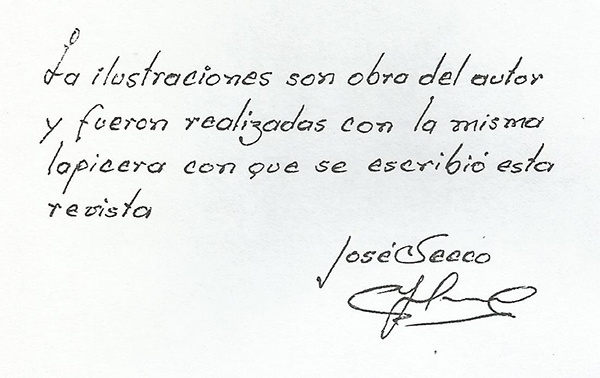 La ilustraciones son obra del autor
y fueron realizadas con la misma
lapicera con que se escribió esta
revista
José Secco